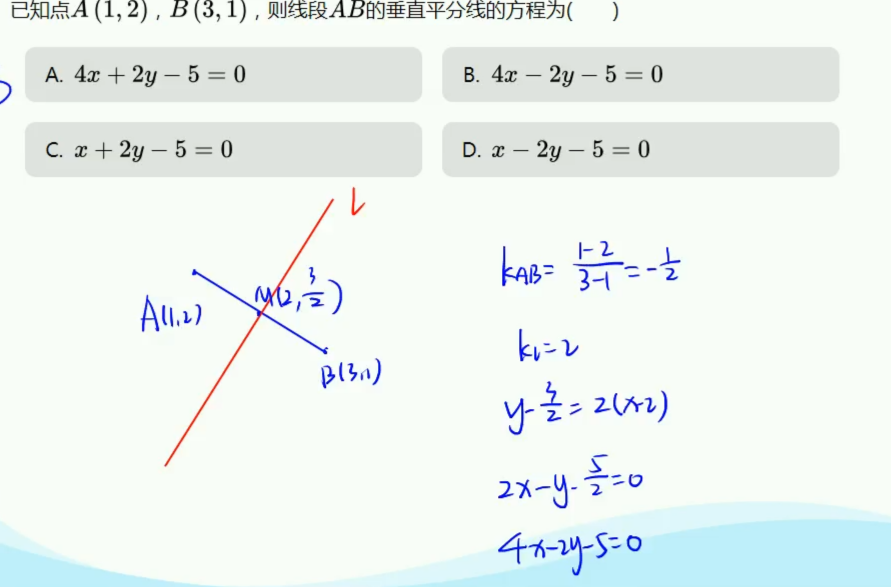 已知点A (1, 2) , B (3, 1) , 则线段AB的垂直平分线的方程为(  )
A. 4x + 2y − 5 = 0
B. 4x − 2y − 5 = 0
C. x + 2y − 5 = 0
D. x − 2y − 5 = 0
L
A(1,2)
M(2, 3/2)
B(3,1)
k_AB = (1-2)/(3-1) = -1/2
k_L = 2
y - 3/2 = 2(x-2)
2x - y - 5/2 = 0
4x - 2y - 5 = 0